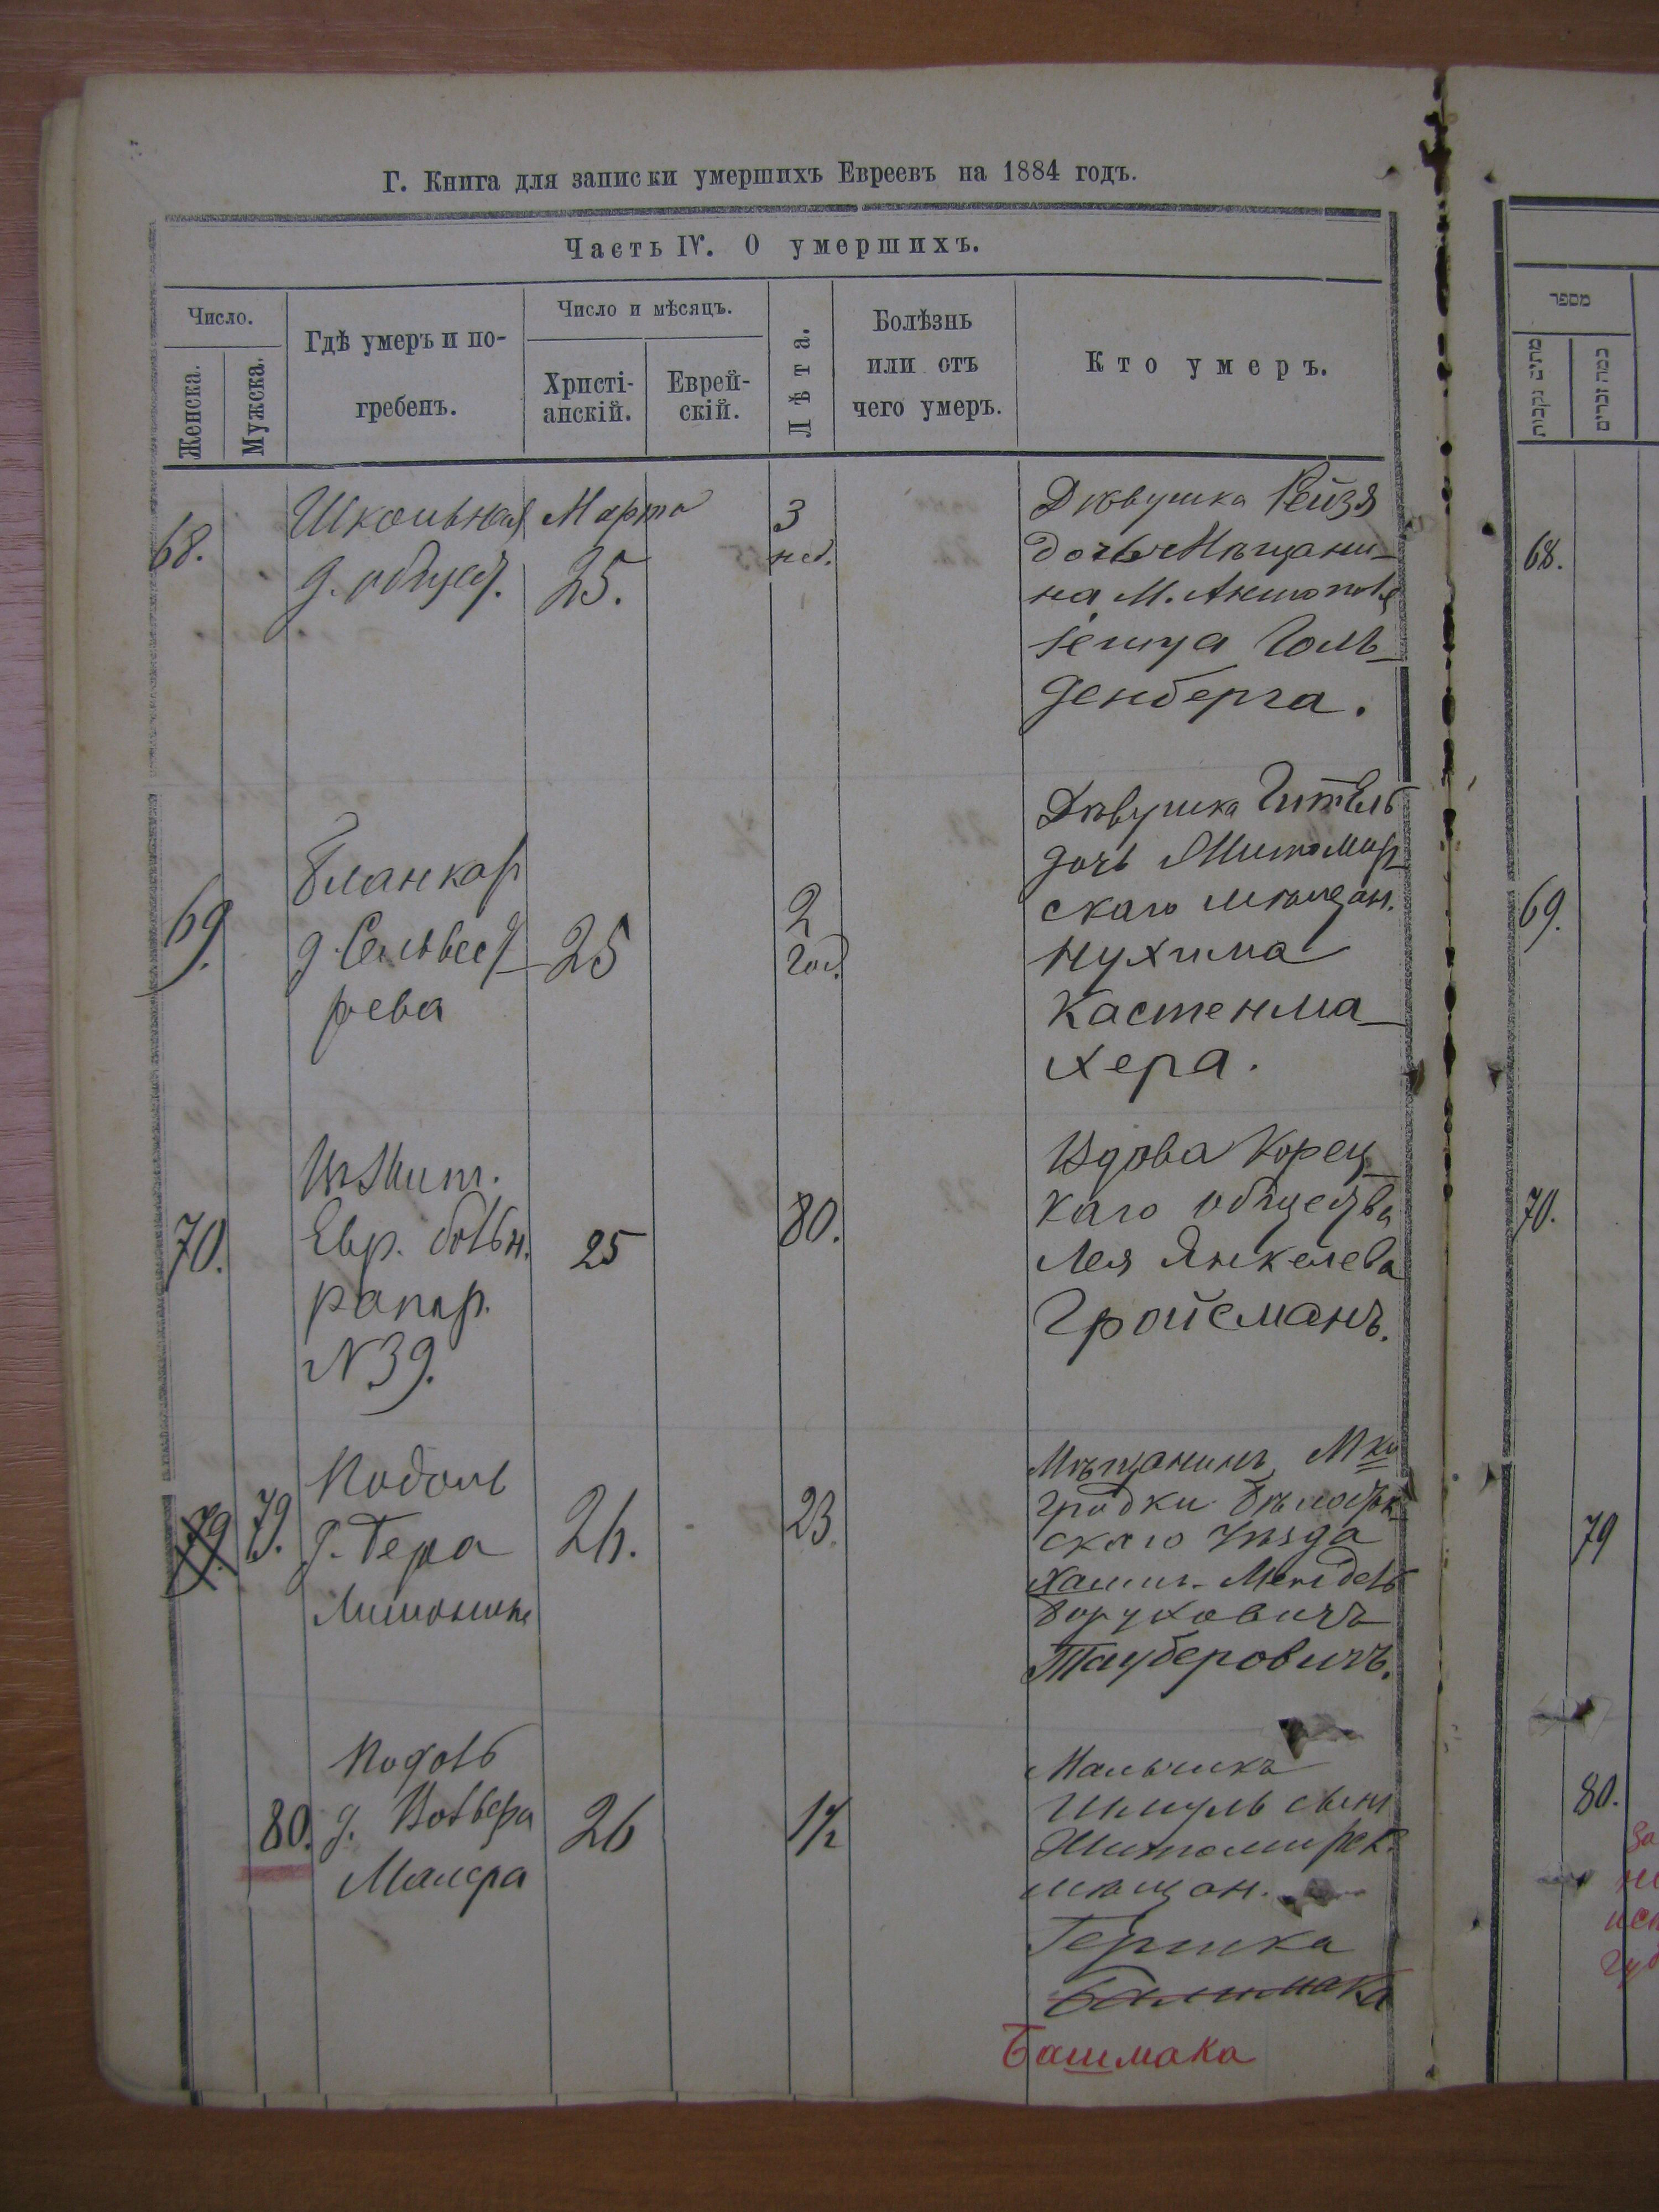 Г. Книга для записки умершихъ Евреевъ на 1884 годъ.
Часть IV. О умершихъ.
Число.
Женска.
Мужска.
Гдѣ умеръ и по-
гребенъ.
Число и мѣсяцъ.
Христі-
анскій.
Еврей-
скій.
Лѣта.
Болѣзнь
или отъ
чего умеръ.
Кто умеръ.
68.
Школьная
д. общест.
Марта
25.
3
нед.
Дѣвушка Рейзя
дочь Мѣщани-
на М.
Голь-
денберга.
69.
д.
рева
25
2
год.
Дѣвушка Гитель
дочь Житомир
скаго мѣщан.
Нухима
Кастенма-
хера.
70.
Жит.
Евр. больн.
рапор.
N 39.
25
80.
Вдова Корец
каго общества
Лея Янкелева
Гройсманъ.
79.
79.
Подоль
д. Бера
26.
23.
Мѣщанинъ М-ка
скаго уѣзда
Хаимъ-Мендель
Боруховичъ
Тауберовичъ.
80.
Подоль
д. Вольфа
Малера
26
1 1/2
Мальчикъ
Шмуль сынъ
Житомирск.
мѣщан.
Гершка
Башмака
מספר
מתים נקבות
כמה זכרים
68.
69.
70.
79
80.